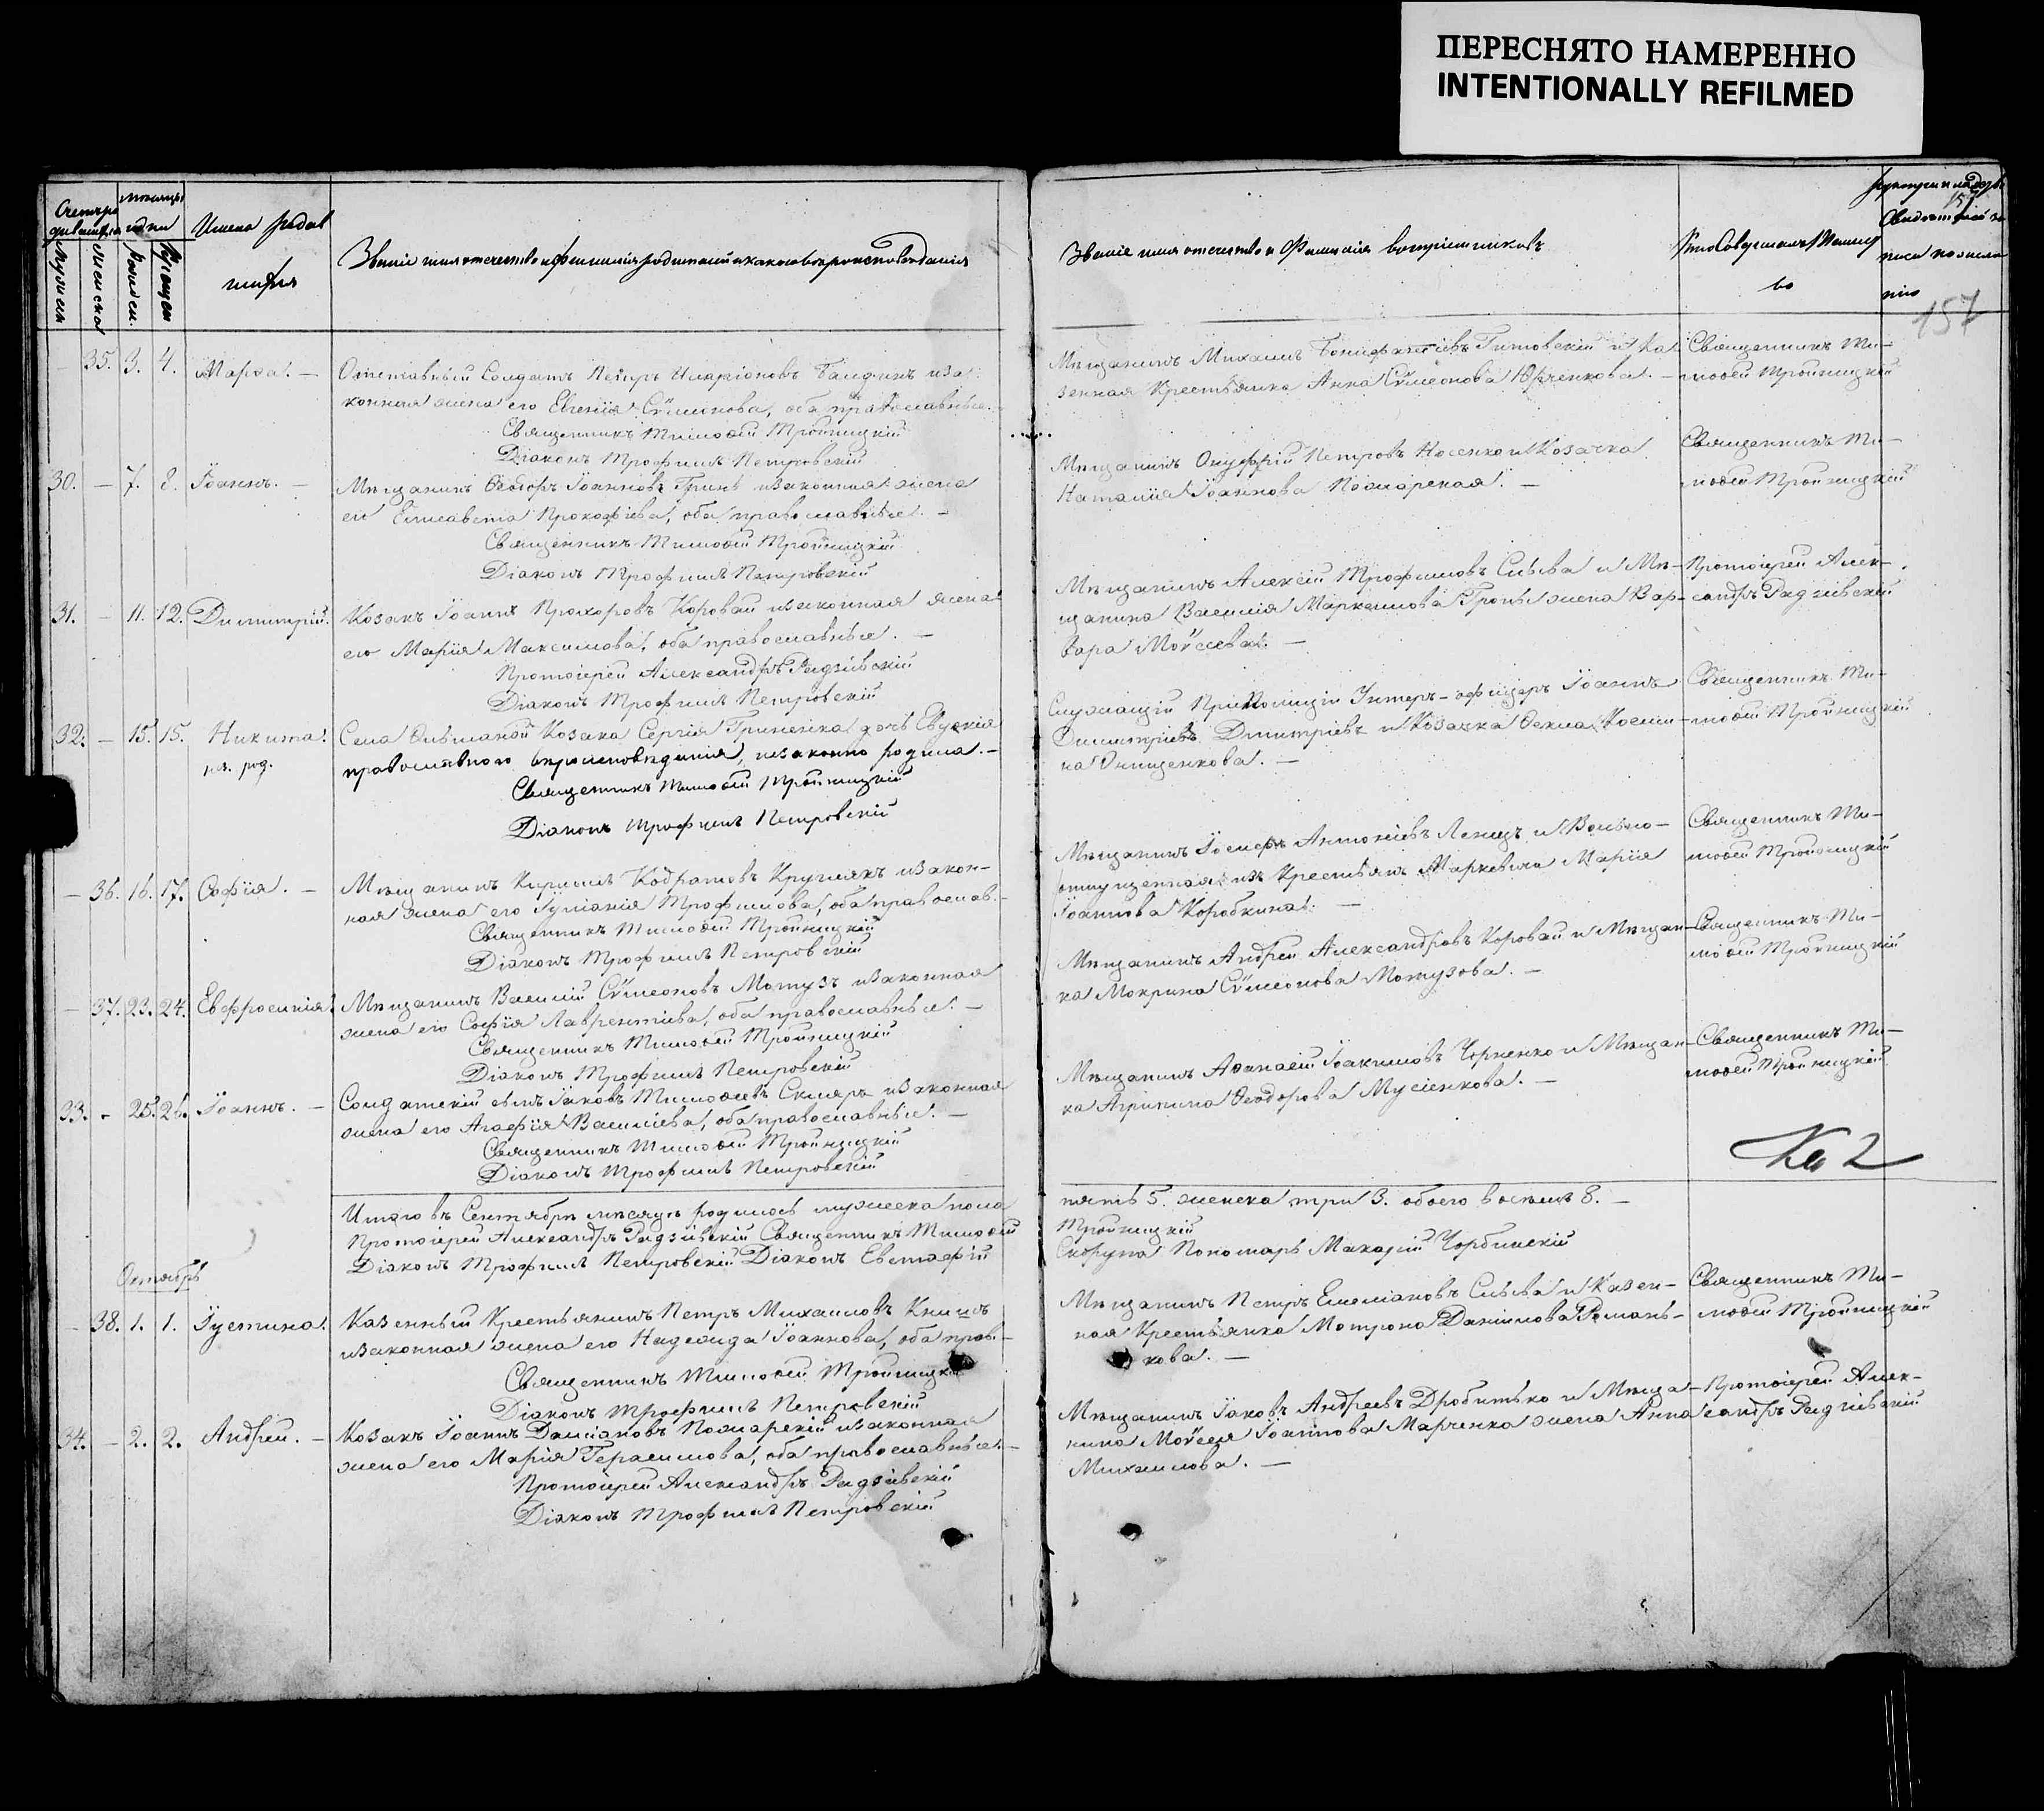 ПЕРЕСНЯТО НАМЕРЕННО
INTENTIONALLY REFILMED
157
Имена родив
шихся
Званіе имя отечество и фамилія родителей и какого вѣроисповѣданія
Званіе имя отечество и Фамилія воспріемниковъ
Кто совершалъ таинст
во
35. 3. 4. Марѳа. —
Отставный Солдатъ Петръ Иларіоновъ и за
конная жена его Евгенія Сѷмеонова, оба православные.
Священникъ Тимоѳей Тройницкій
Діаконъ Трофимъ Петровскій
Мѣщанинъ Михаилъ Бонифатіевъ Гитовскій и Ка
зенная Крестьянка Анна Сѷмеонова Юрченкова. —
Священникъ Ти—
моѳей Тройницкій
30. — 7. 8. Іоаннъ. —
Мѣщанинъ Ѳеодоръ Іоанновъ Гринь и законная жена
его Елисавета Прокофіева, оба православные. —
Священникъ Тимоѳей Тройницкій
Діаконъ Трофимъ Петровскій
Мѣщанинъ Онуфрій Петровъ Носенко и Козачка
Наталія Іоаннова Пожарская. —
Священникъ Ти—
моѳей Тройницкій
31. — 11. 12. Димитрій.
Козакъ Іоаннъ Прохоровъ Коровай и законная жена
его Марія Максимова, оба православные. —
Протоіерей Александръ Радзіевскій
Діаконъ Трофимъ Петровскій
Мѣщанинъ Алексій Трофимовъ Слѣва и Мѣ—
щанина Василія Маркелова жена Вар—
вара Моѷсеева. —
Протоіерей Алек—
сандръ Радзіевскій
32. — 15. 15. Никита.
нз. род.
Села Ольшаной Козака Сергія Гриненка дочь Евдокія
православного вѣроисповѣданія, незаконно родила. —
Священникъ Тимоѳей Тройницкій
Діаконъ Трофимъ Петровскій
Служащій при Полиціи Унтеръ-офицеръ Іоаннъ
Димитріевъ Дмитріевъ и Козачка Ѳекла Косми—
на Онищенкова. —
Священникъ Ти—
моѳей Тройницкій
— 36. 16. 17. Софія. —
Мѣщанинъ Кирилъ Кодратовъ Круглякъ и закон—
ная жена его Іуліанія Трофимова, оба православ. —
Священникъ Тимоѳей Тройницкій
Діаконъ Трофимъ Петровскій
Мѣщанинъ Іосифъ Антоніевъ Ленецъ и Вольно—
отпущенная изъ Крестьянъ Маркевича Марія
Іоаннова Коробкина. —
Священникъ Ти—
моѳей Тройницкій
— 37. 23. 24. Евфросинія.
Мѣщанинъ Василій Сѷмеоновъ Мотузъ и законная
жена его Софія Лаврентіева, оба православные. —
Священникъ Тимоѳей Тройницкій
Діаконъ Трофимъ Петровскій
Мѣщанинъ Андрей Александровъ Коровай и Мѣщан—
ка Мокрина Сѷмеонова Мотузова. —
Священникъ Ти—
моѳей Тройницкій
33. — 25. 26. Іоаннъ. —
Солдатскій сынъ Іаковъ Тимоѳеевъ Скляръ и законная
жена его Агафія Василіева, оба православные. —
Священникъ Тимоѳей Тройницкій
Діаконъ Трофимъ Петровскій
Мѣщанинъ Аѳанасій Іоакимовъ Черненко и Мѣщан—
ка Агрипина Ѳеодорова Мусіенкова. —
Священникъ Ти—
моѳей Тройницкій
Итого въ Сентябрѣ мѣсяцѣ родилось мужеска пола
пять 5. женска три 3. обоего восемь 8. —
Протоіерей Александръ Радзіевскій Священникъ Тимоѳей
Тройницкій
Діаконъ Трофимъ Петровскій Діаконъ Евстафій
Скорупа Пономарь Макарій Чорбинскій
Октябрь
— 38. 1. 1. Іустина.
Казенный Крестьянинъ Петръ Михаиловъ Книшъ
и законная жена его Надежда Іоаннова, оба прав. —
Священникъ Тимоѳей Тройницкій
Діаконъ Трофимъ Петровскій
Мѣщанинъ Петръ Емеліановъ Слѣва и Казен—
ная Крестьянка Матрона Даніилова Романь—
кова. —
Священникъ Ти—
моѳей Тройницкій
34. — 2. 2. Андрей. —
Козакъ Іоаннъ Даміановъ Пожарскій и законная
жена его Марія Герасимова, оба православные. —
Протоіерей Александръ Радзіевскій
Діаконъ Трофимъ Петровскій
Мѣщанинъ Іаковъ Андреевъ Дробитько и Мѣща—
нина Моѷсея Іоаннова Марченка жена Анна
Михаилова. —
Протоіерей Алек—
сандръ Радзіевскій